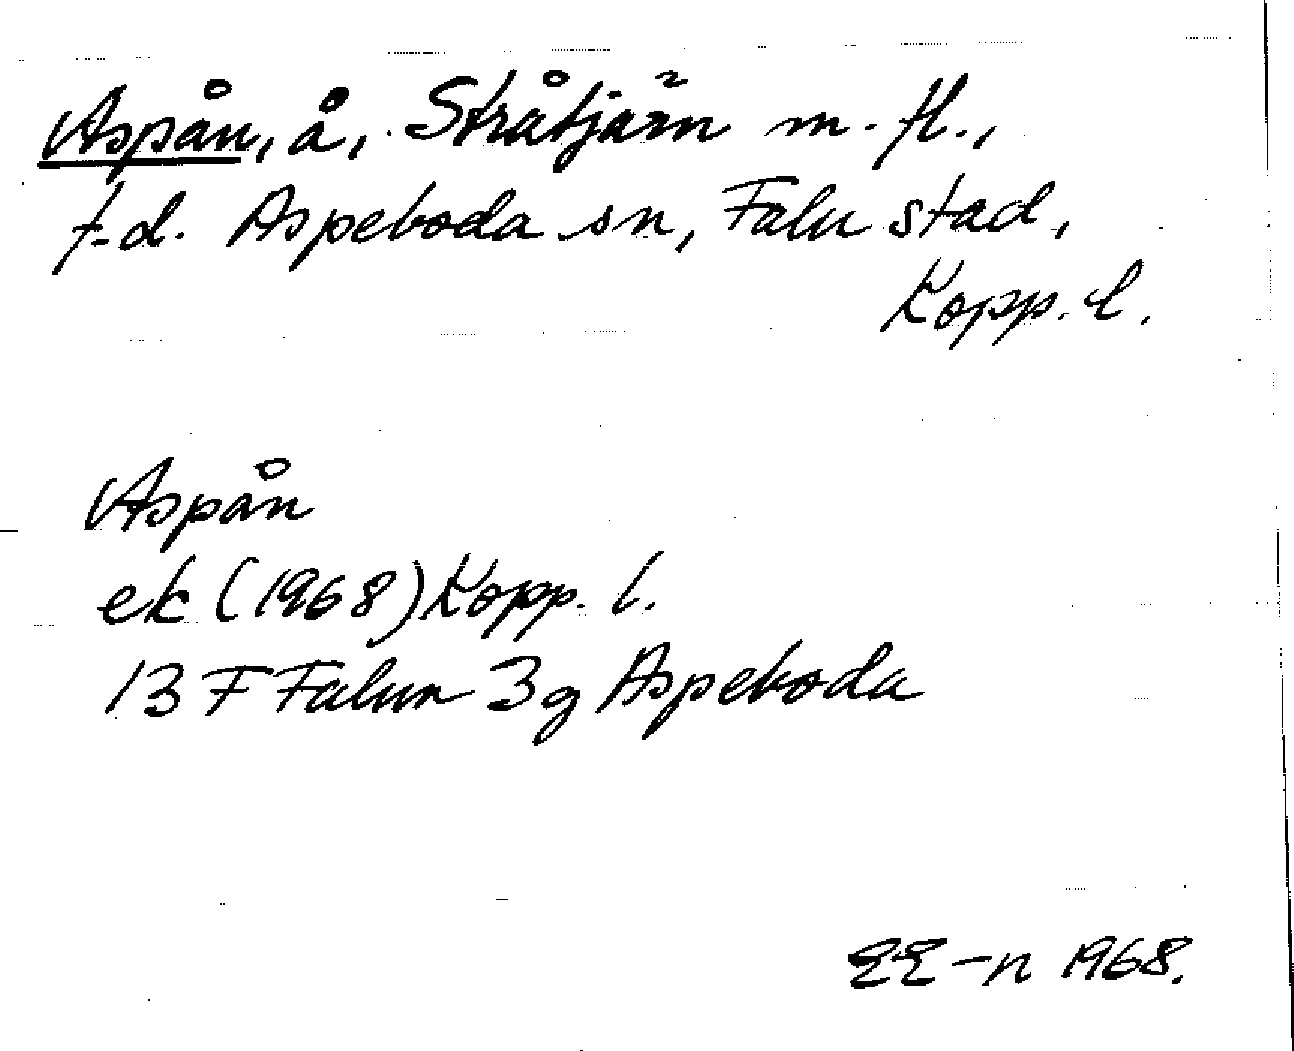 Aspån, å, Stråtjärn m.fl.,
f.d. Aspeboda sn, Falu stad,
Kopp. l.
Aspån
ek (1968) Kopp. l.
13 F Falun 3g Aspeboda
EE-n 1968.